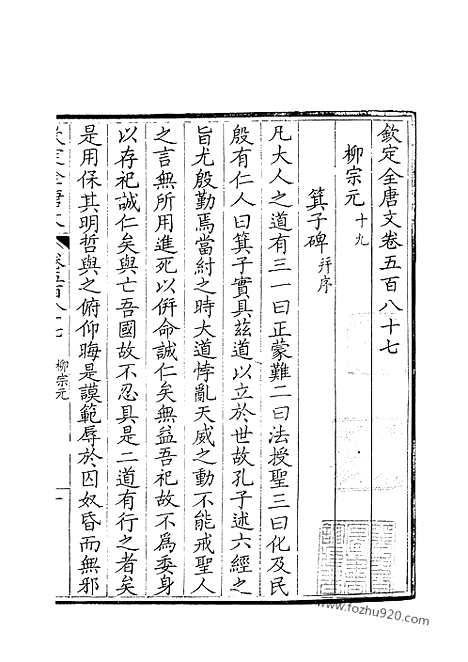 欽定全唐文卷五百八十七
柳宗元 十九
箕子碑 幷序
凡大人之道有三一曰正蒙難二曰法授聖三曰化及民
殷有仁人曰箕子實具茲道以立於世故孔子述六經之
旨尤殷勤焉當紂之時大道悖亂天威之動不能戒聖人
之言無所用進死以併命誠仁矣無益吾祀故不爲委身
以存祀誠仁矣與亡吾國故不忍具是二道有行之者矣
是用保其明哲與之俯仰晦是謨範辱於囚奴昏而無邪
欽定全唐文 卷五百八十七 柳宗元 一
www.fozhu920.com